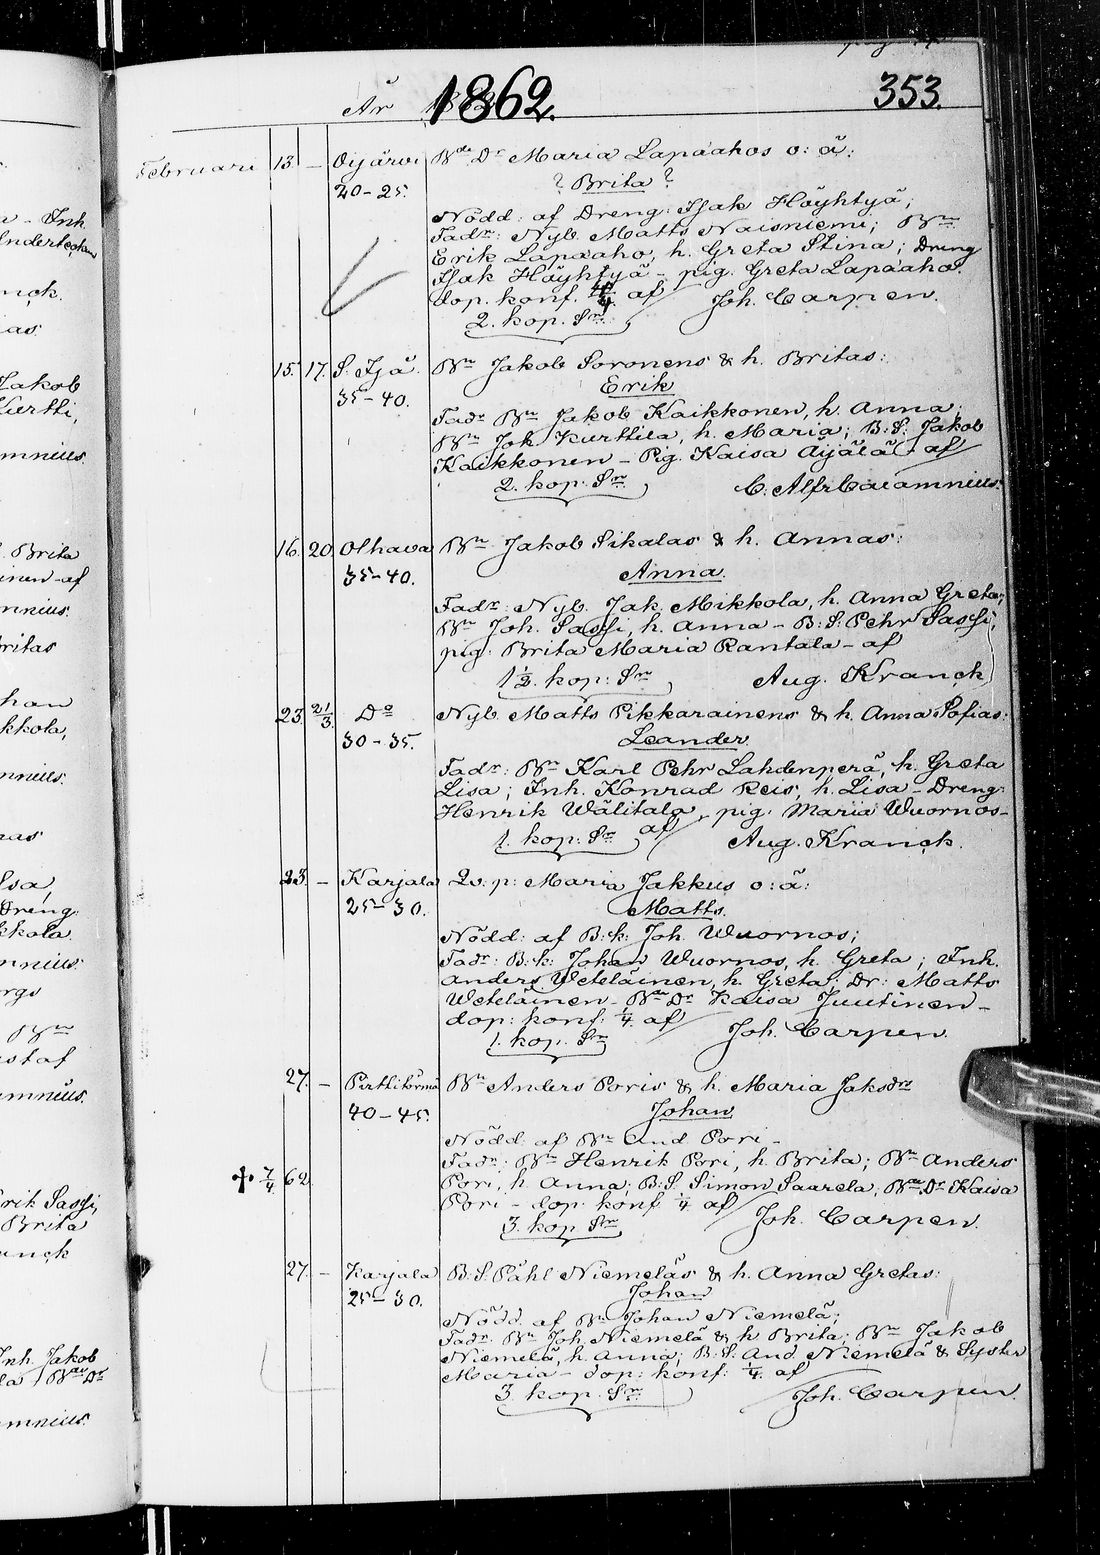 År 1862. 353.
Februari 13 – Oijärvi Bde Dr Maria Lapaahos o: ä:
20–25. ? Brita ?
Nödd: af Dreng: Isak Höyhtyä;
Fadr: Nyb. Matts Naisniemi; Bn
Erik Lapaaho, h. Greta Stina; Dreng
Isak Höyhtyä – pig. Greta Lapaaho.
dop. konf. af Joh. Carpen.
2. kop. Sr
15. 17. S. Ijä Bn Jakob Soronens & h. Britas:
35–40. Erik
Fadr Bn Jakob Kaikkonen, h. Anna;
Bn Joh Kurttila, h. Maria; B: S. Jakob
Kaikkonen – Pig. Kaisa Äijälä – af
2. kop: Sr C. Alfr Calamnius.
16. 20. Olhava Bn Jakob Sikalas & h. Annas:
35–40. Anna.
Fadr: Nyb. Jak. Mikkola, h. Anna Greta;
Bn Joh. Sassi, h. Anna – B: S. Pehr Sassi,
pig: Brita Maria Rantala – af
1½. kop: Sr Aug. Kranck
23 21/3. Do Nyb. Matts Pikkarainens & h. Anna Sofias:
30–35. Leander.
Fadr: Bn Karl Pehr Lahdenperä, h. Greta
Lisa; Inh. Konrad Reis, h. Lisa – Dreng
Henrik Wälitalo, pig. Maria Wuornos –
1. kop: Sr af Aug. Kranck.
23. – Karjala Qv: p: Maria Jakkus o: ä:
25–30. Matts.
Nödd: af B: k: Joh. Wuornos;
Fadr: B: k: Johan Wuornos, h. Greta; Inh.
Anders Weteläinen, h. Greta; Dr: Matts
Weteläinen – Bde Dr Kaisa Juutinen –
dop: konf: 1/4. af Joh. Carpen.
1. kop. Sr
27. – Pirttitörmä Bn Anders Poris & h. Maria Jaksdr
40–45. Johan
Nödd: af Bn And Pori –
Fadr: Bn Henrik Pori, h. Brita; Bn Anders
✝ 7/4 62 Pori, h. Anna; B: S. Simon Saarela; Bde Dr Kaisa
Pori – dop: konf 1/4 af Joh. Carpen.
3. kop Sr
27. – Karjala B: S. Påhl Niemeläs & h. Anna Gretas:
25–30. Johan
Nödd. af Bn Johan Niemelä;
Fadr. Bn Joh. Niemelä & h Brita; Bn Jakob
Niemelä, h. Anna; B: S. And Niemelä & Syster
Maria – dop: konf: 1/4. af
3. kop. Sr Joh. Carpen.